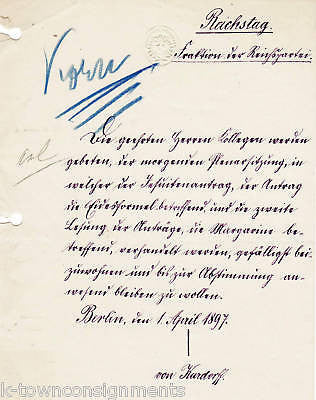 Reichstag.
Fraktion der Reichspartei.
Die geehrten Herren Collegen werden
gebeten, der morgenden Plenarsitzung, in
welcher der Jesuitenantrag, der Antrag
die Eidesformel betreffend, und die zweite
Lesung der Anträge, die Margarine be-
treffend, verhandelt werden, gefälligst bei-
zuwohnen und bis zur Abstimmung an-
wesend bleiben zu wollen.
Berlin, den 1. April 1897.
von Kardorff.
k-townconsignments